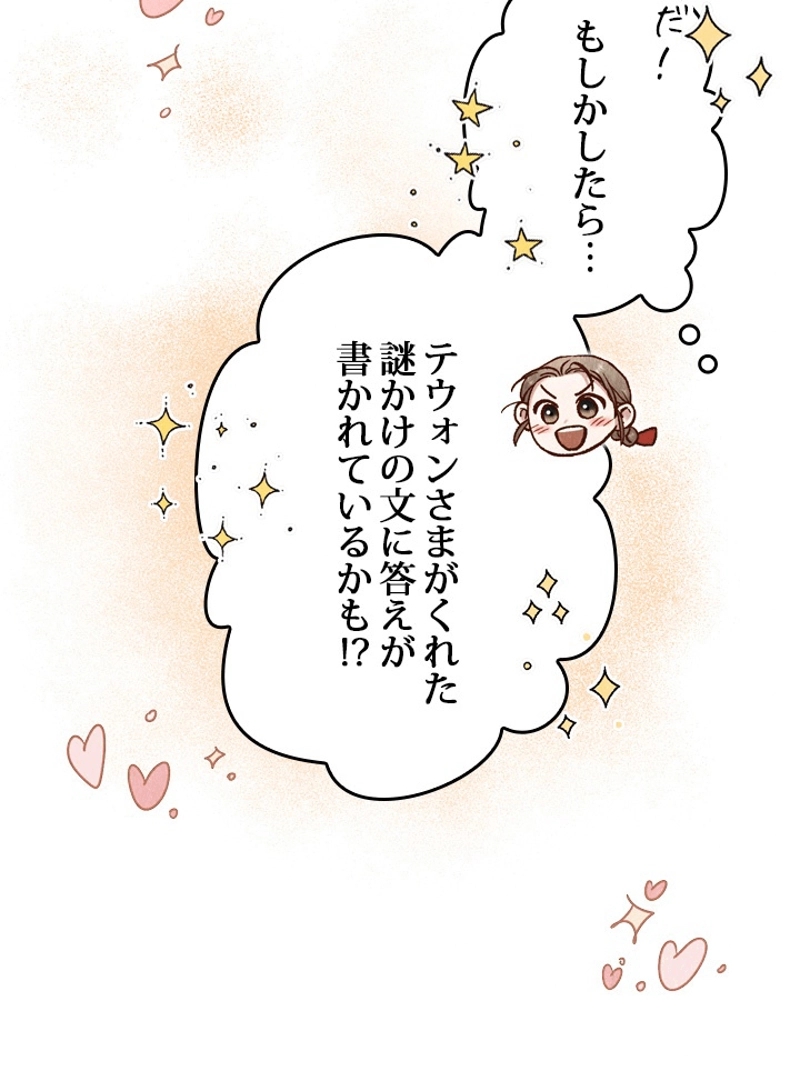 だ！
もしかしたら…
テウォンさまがくれた
謎かけの文に答えが
書かれているかも!?